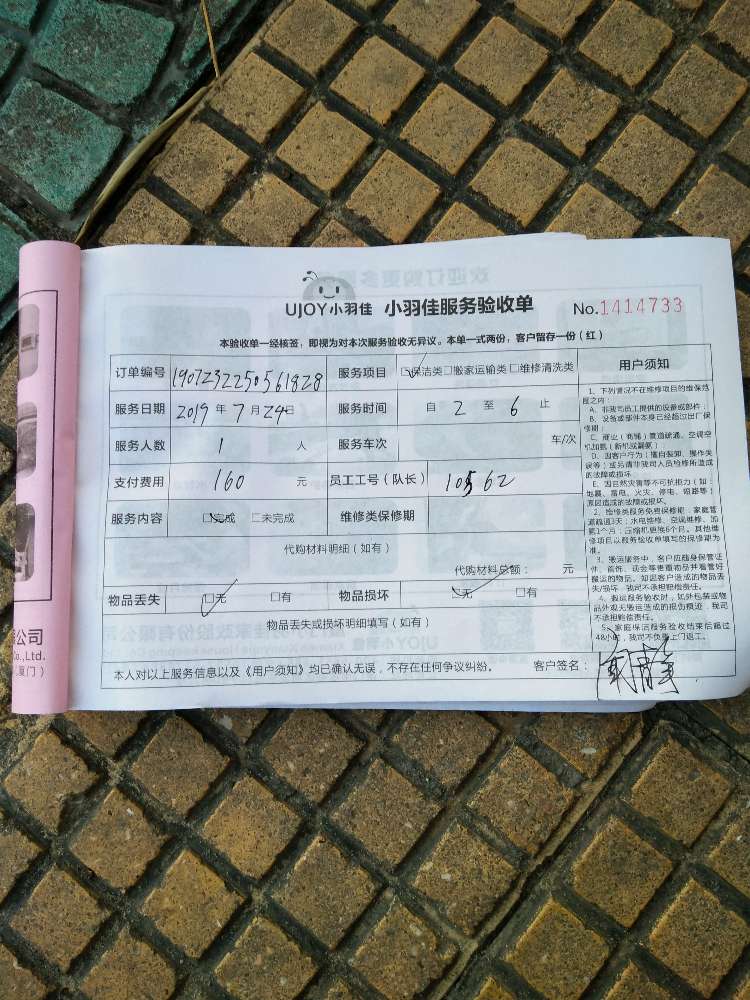 UJOY小羽佳 小羽佳服务验收单 No.1414733
本验收单一经核签，即视为对本次服务验收无异议。本单一式两份，客户留存一份（红）
订单编号 1907232250561828 服务项目 □保洁类□搬家运输类□维修清洗类 用户须知
服务日期 2019年7月24日 服务时间 自 2 至 6 止
服务人数 1 人 服务车次 车/次
支付费用 160 元 员工工号（队长） 10562
服务内容 □完成 □未完成 维修类保修期
代购材料明细（如有）
代购材料总额： 元
物品丢失 □无 □有 物品损坏 □无 □有
物品丢失或损坏明细填写（如有）
本人对以上服务信息以及《用户须知》均已确认无误，不存在任何争议纠纷。 客户签名：
1、下列情况不在维修项目的维保范
围之内：
A、非我司员工提供的设备或部件；
B、设备或部件本身已经超过出厂保
修期；
C、商业（商铺）管道疏通、空调空
机加氟（新机或漏氟）
D、因客户行为（擅自装卸、操作失
误等）或另请非我司人员检修所造成
的故障或损坏
E、因自然灾害等不可抗拒力（如：
地震、雷电、火灾、停电、短路等）
原因造成的故障或损坏。
2、维修类服务免费保修期：家庭管
道疏通3天；水电维修、空调维修、加
氟1个月；压缩机更换6个月。其他维
修项目以服务验收单填写的保修期为
准。
3、搬运服务中，客户应随身保管证
件、首饰、现金等贵重物品并看管好
搬运的物品。如因客户造成的物品丢
失/损坏，我司不承担赔偿责任。
4、搬运服务验收时，如外包装或物
品外观无搬运造成的损伤痕迹，我司
不承担赔偿责任。
5、家庭保洁服务验收结束后超过
48小时，我司不负责上门返工。
公司
Co.,Ltd.
厦门）